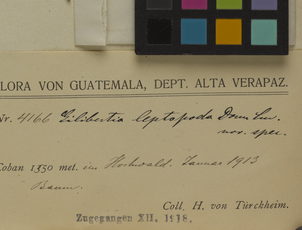 FLORA VON GUATEMALA, DEPT. ALTA VERAPAZ.
Nr. 4166 Gilibertia leptopoda Donn. Sm.
nov. spec.
Coban 1350 met. im Hochwald. Januar 1913
Baum.
Coll. H. von Türckheim.
Zugegangen XII, 1918.